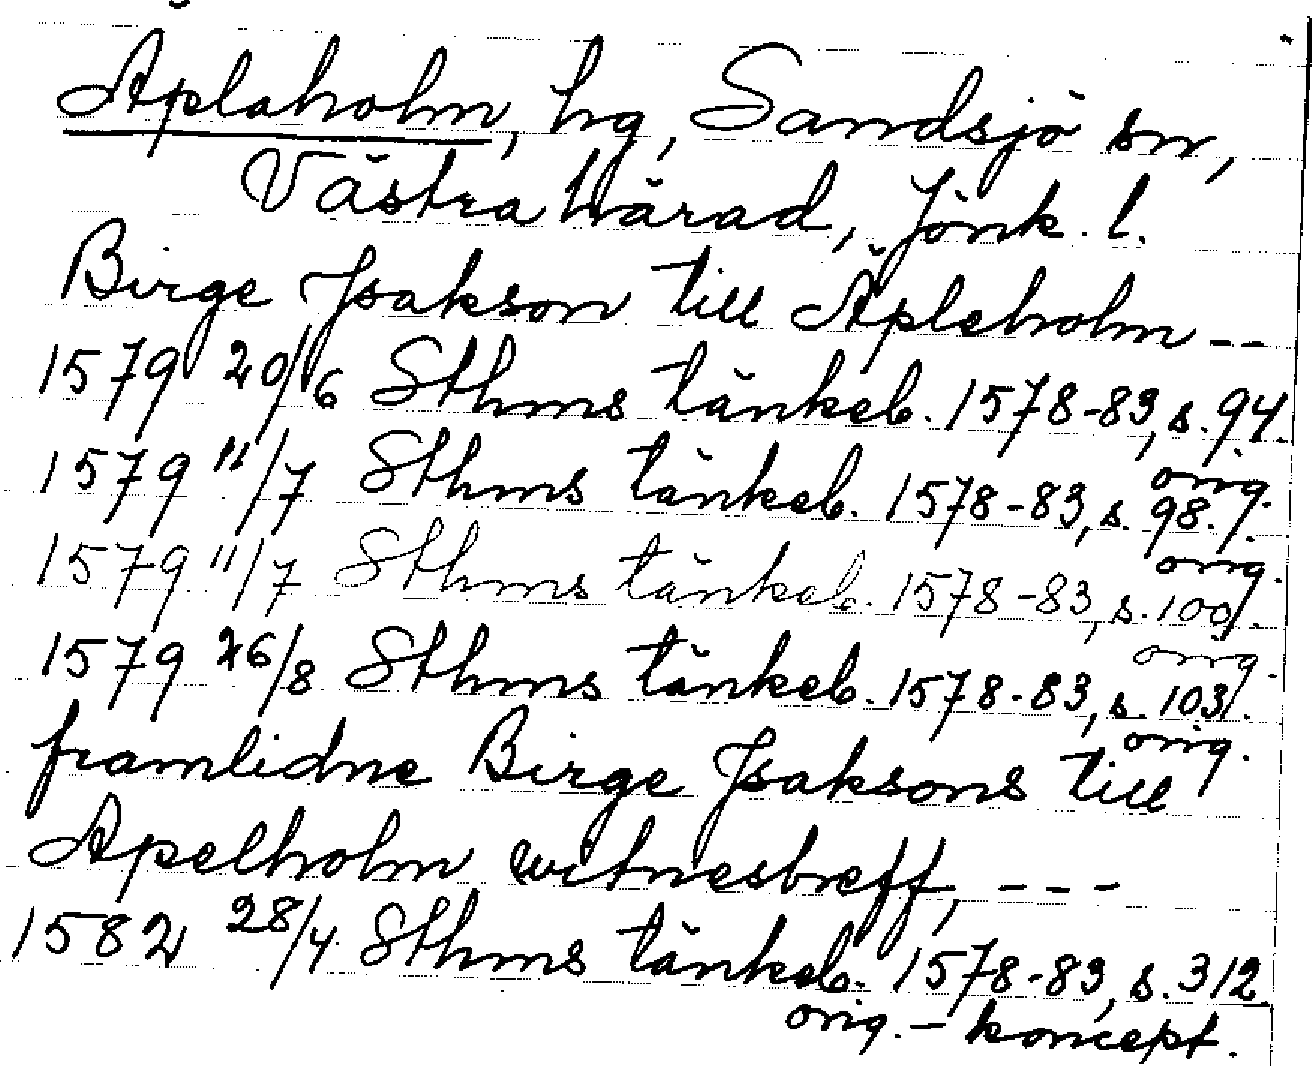 Äplaholm, hg, Sandsjö sn,
Västra härad, Jönk. l.
Birge Jsakson till Äpleholm --
1579 20/6 Sthms tänkeb. 1578-83, s. 94.
orig.
1579 11/7 Sthms tänkeb. 1578-83, s. 98.
orig.
1579 11/7 Sthms tänkeb. 1578-83, s. 100.
orig.
1579 26/8 Sthms tänkeb. 1578-83, s. 103.
orig.
framlidne Birge Jsaksons till
Apelholm witnesbreff, ---
1582 28/4 Sthms tänkeb. 1578-83, s. 312
orig. - koncept.